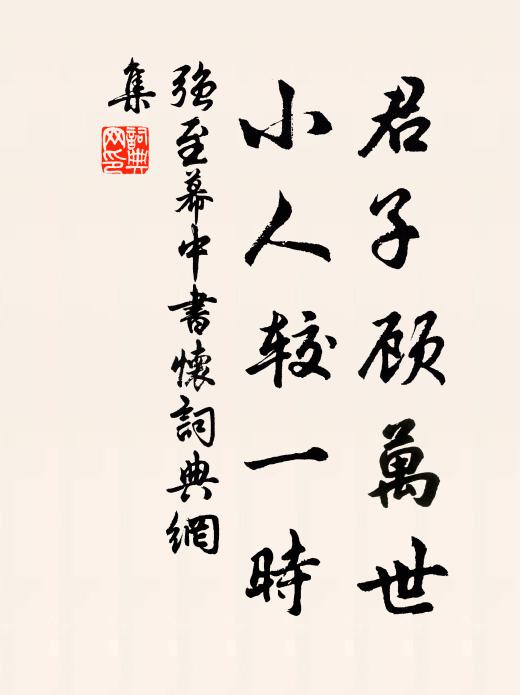 君子顾萬世
小人较一時
强至幕中書懷詞典網
集
詞典
网印